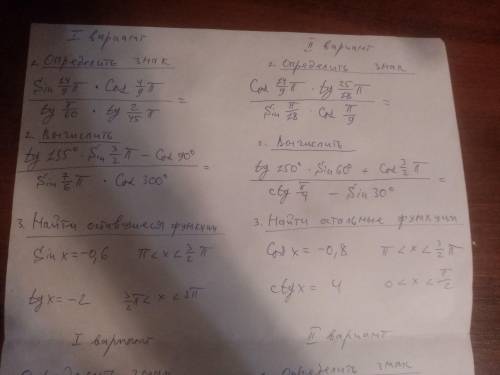 I вариант
1. Определить знак
Sin 24/9 π · Cos 4/9 π
tg π/60 · tg 2/45 π =
2. Вычислить
tg 135° · Sin 3/2 π - Cos 90°
Sin 7/6 π · Cos 300° =
3. Найти оставшиеся функции
Sin x = -0,6 π < x < 3/2 π
tg x = -2 3/2 π < x < 2π
I вариант
Определить знак
II вариант
2. Определить знак
π · tg 25/28 π
Sin π/28 · Cos π/9 =
2. Вычислить
· Sin 60° + Cos 3/2 π
ctg π/4 - Sin 30° =
3. Найти остальные функции
Cos x = -0,8 π < x < 3/2 π
ctg x = 4 0 < x < π/2
II вариант
Определить знак